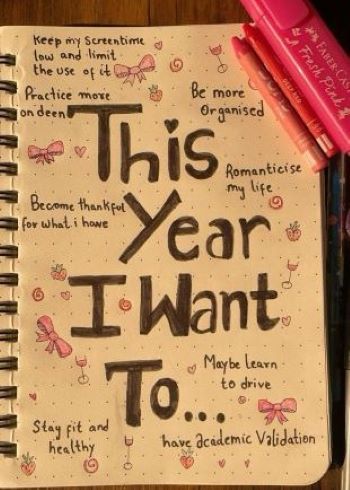 Keep my Screentime
low and limit
the use of it
Practice more
on deen
Be more
Organised
This
Romanticise
my life
Become thankful
for what i have
Year
I Want
To...
Maybe learn
to drive
Stay fit and
healthy
have academic Validation
FABER-CAS
Fresh Pink